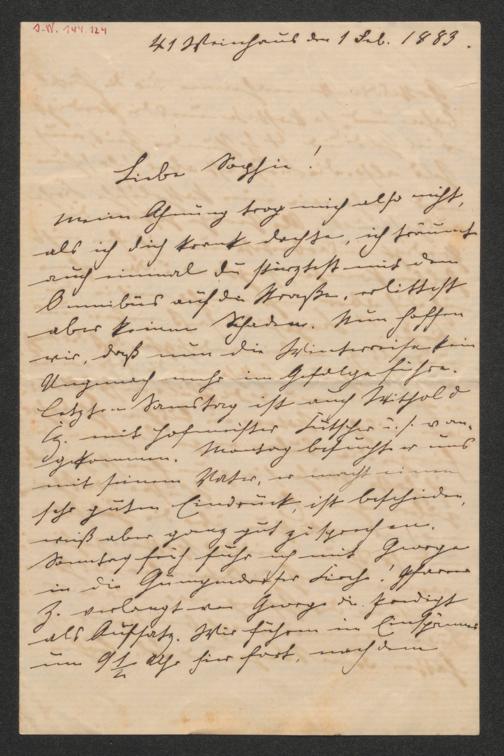 J.N. 144.124
41 Weinhaus den 1 Feb. 1883.
Liebe Sophie!
Meine Ahnung trog mich also nicht,
als ich dich krank dachte, ich träumte
auch einmal du stürztest mit dem
Omnibus auf die Straße, erlittest
aber keinen Schaden. Nun hoffen
wir, daß nun die Winterreise kein
Ungemach mehr im Gefolge führe.
Letzten Samstag ist auch Withold
Cz. mit Hofmeister Lutscher u.s.
angekommen. Montag besucht er uns
mit seinem Vater, er macht einen
sehr guten Eindruck, ist bescheiden,
weiß aber ganz gut zu sprechen.
Sonntag früh fuhr ich mit George
in die Gumpendorfer Kirche. Pfarrer
Z. verlangt von George die Predigt
als Aufsatz. Wir fuhren im Einspänner
um 9 1/2 Uhr hier fort, nachdem